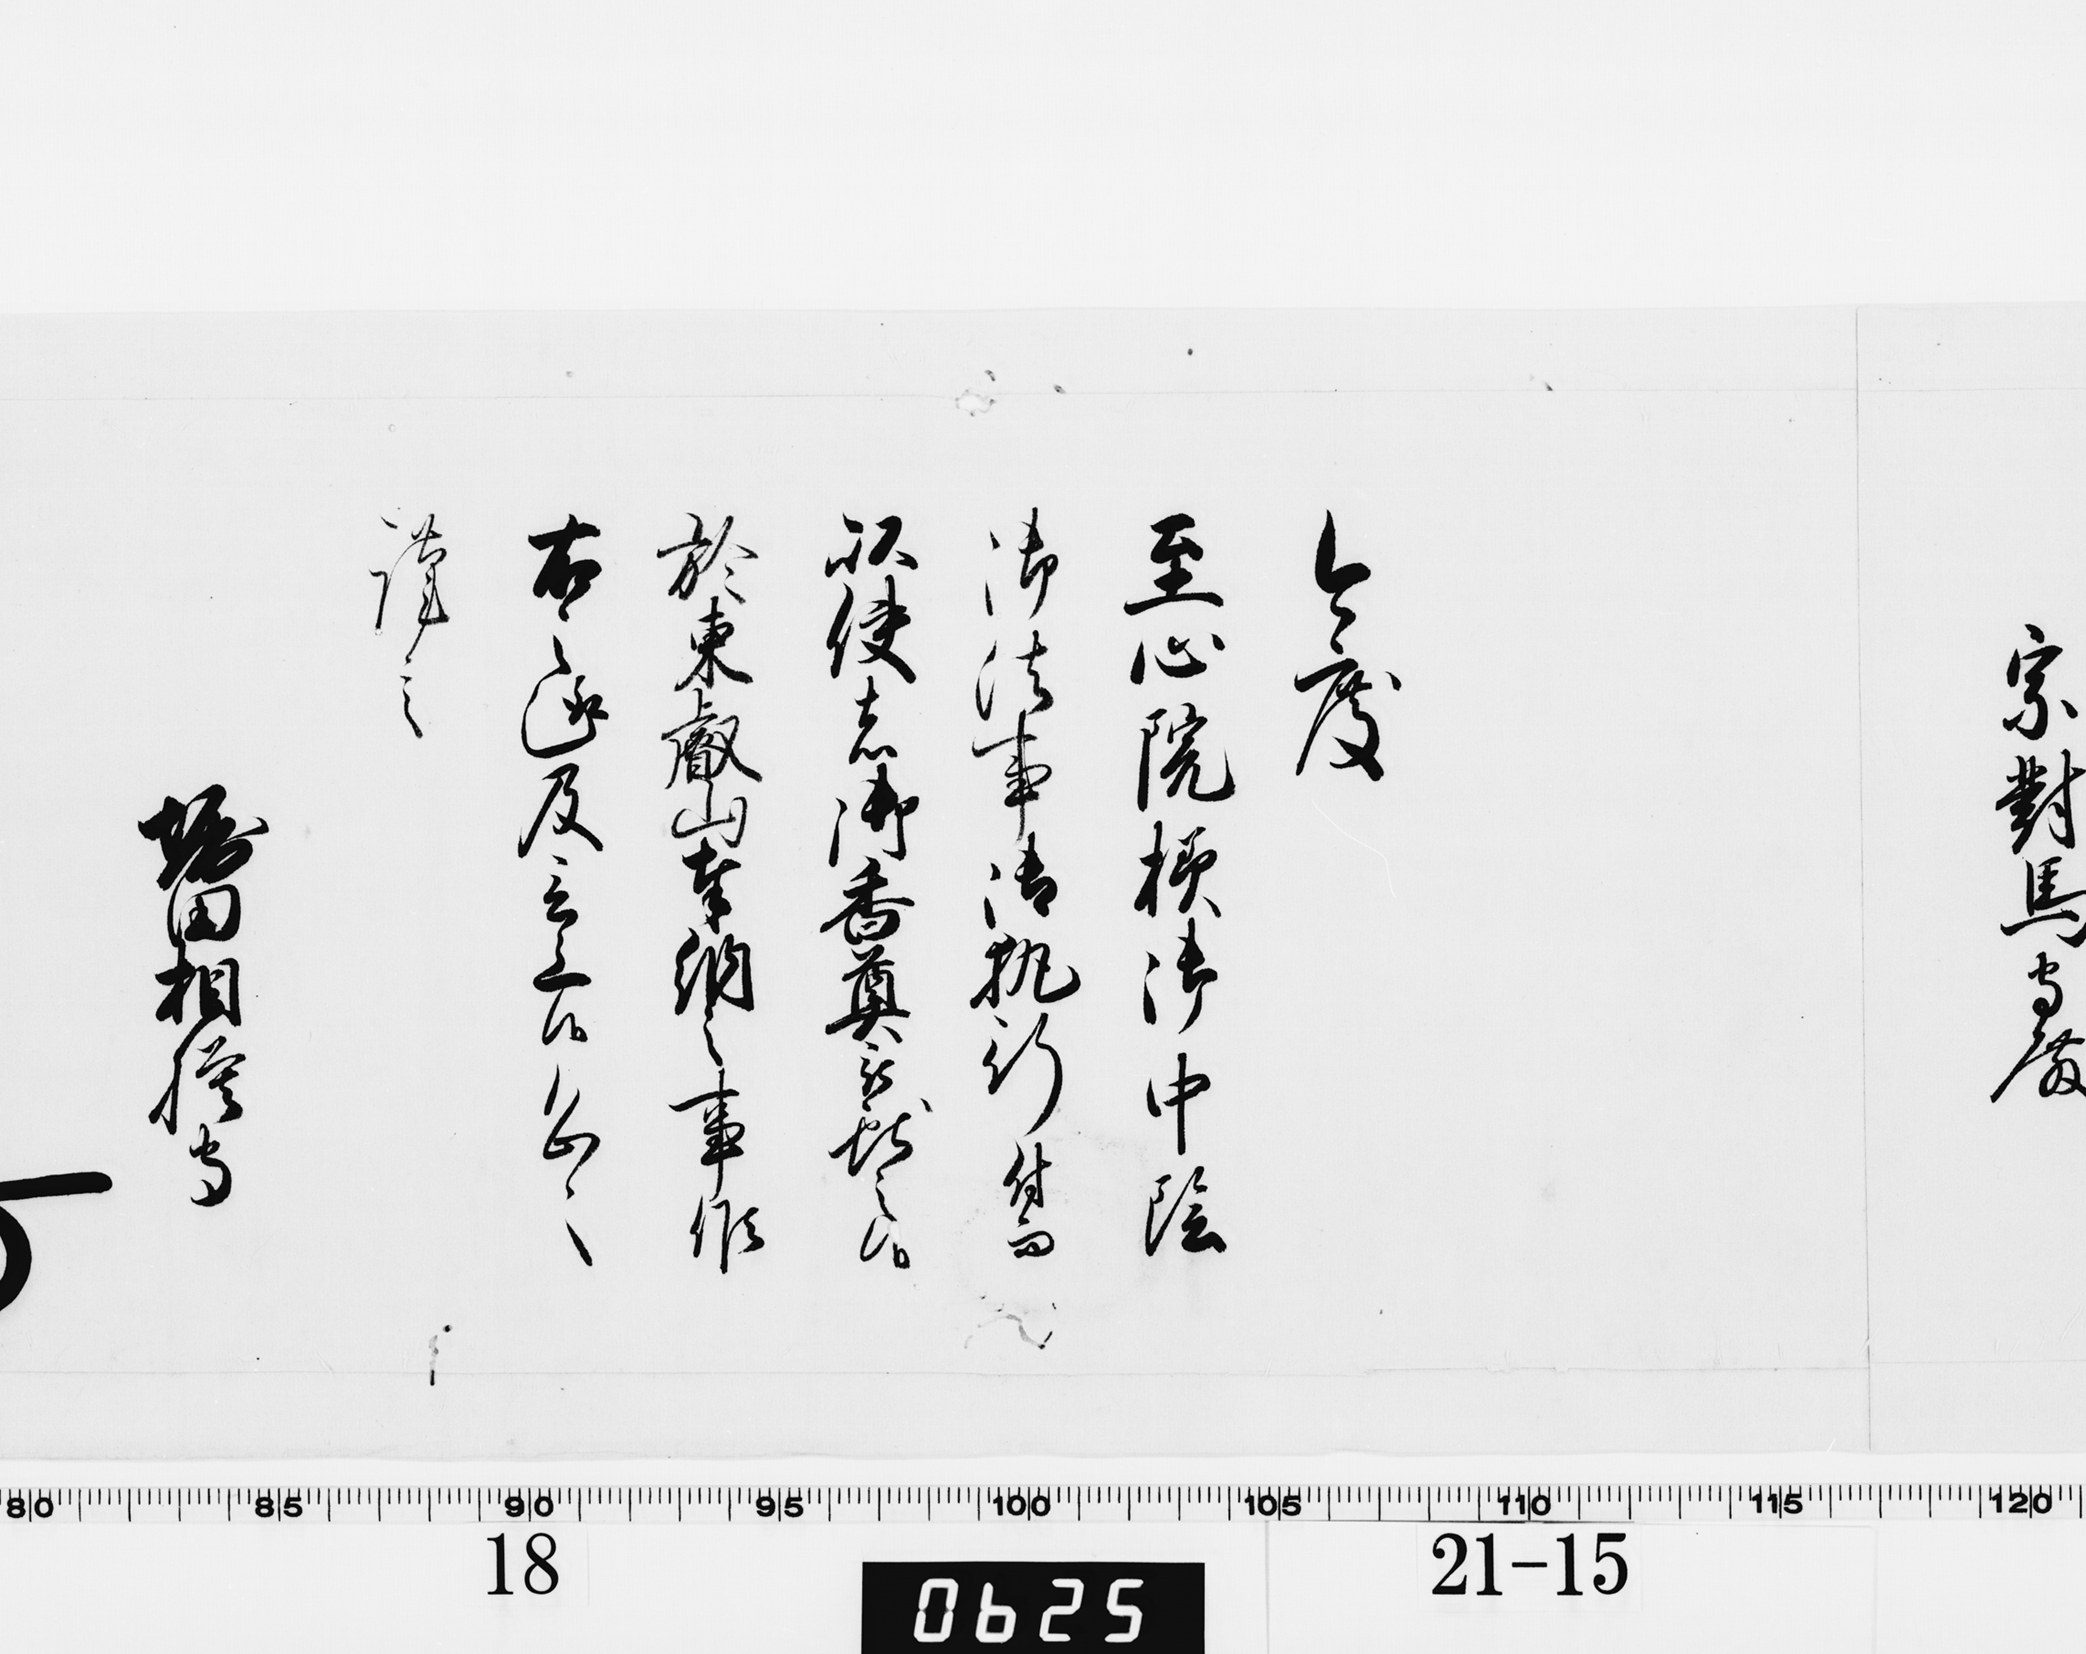 宗對馬守殿
今度
至心院様御中陰
御法事御執行付而
以使者御香奠被獻之候
於東叡山奉納之事候
右之趣及言上候恐々
謹言
堀田相模守
80 85 90 95 100 105 110 115 120
18
21-15
0625